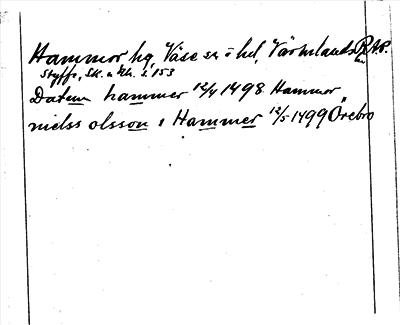 Hammer hg, Väse sn o hd, Värmlands
Styffe, Sk. u. Uh. s. 153
Datum hammer 12/4 1498 Hammer
nielss olsson i Hammer 12/5 1499 Örebro